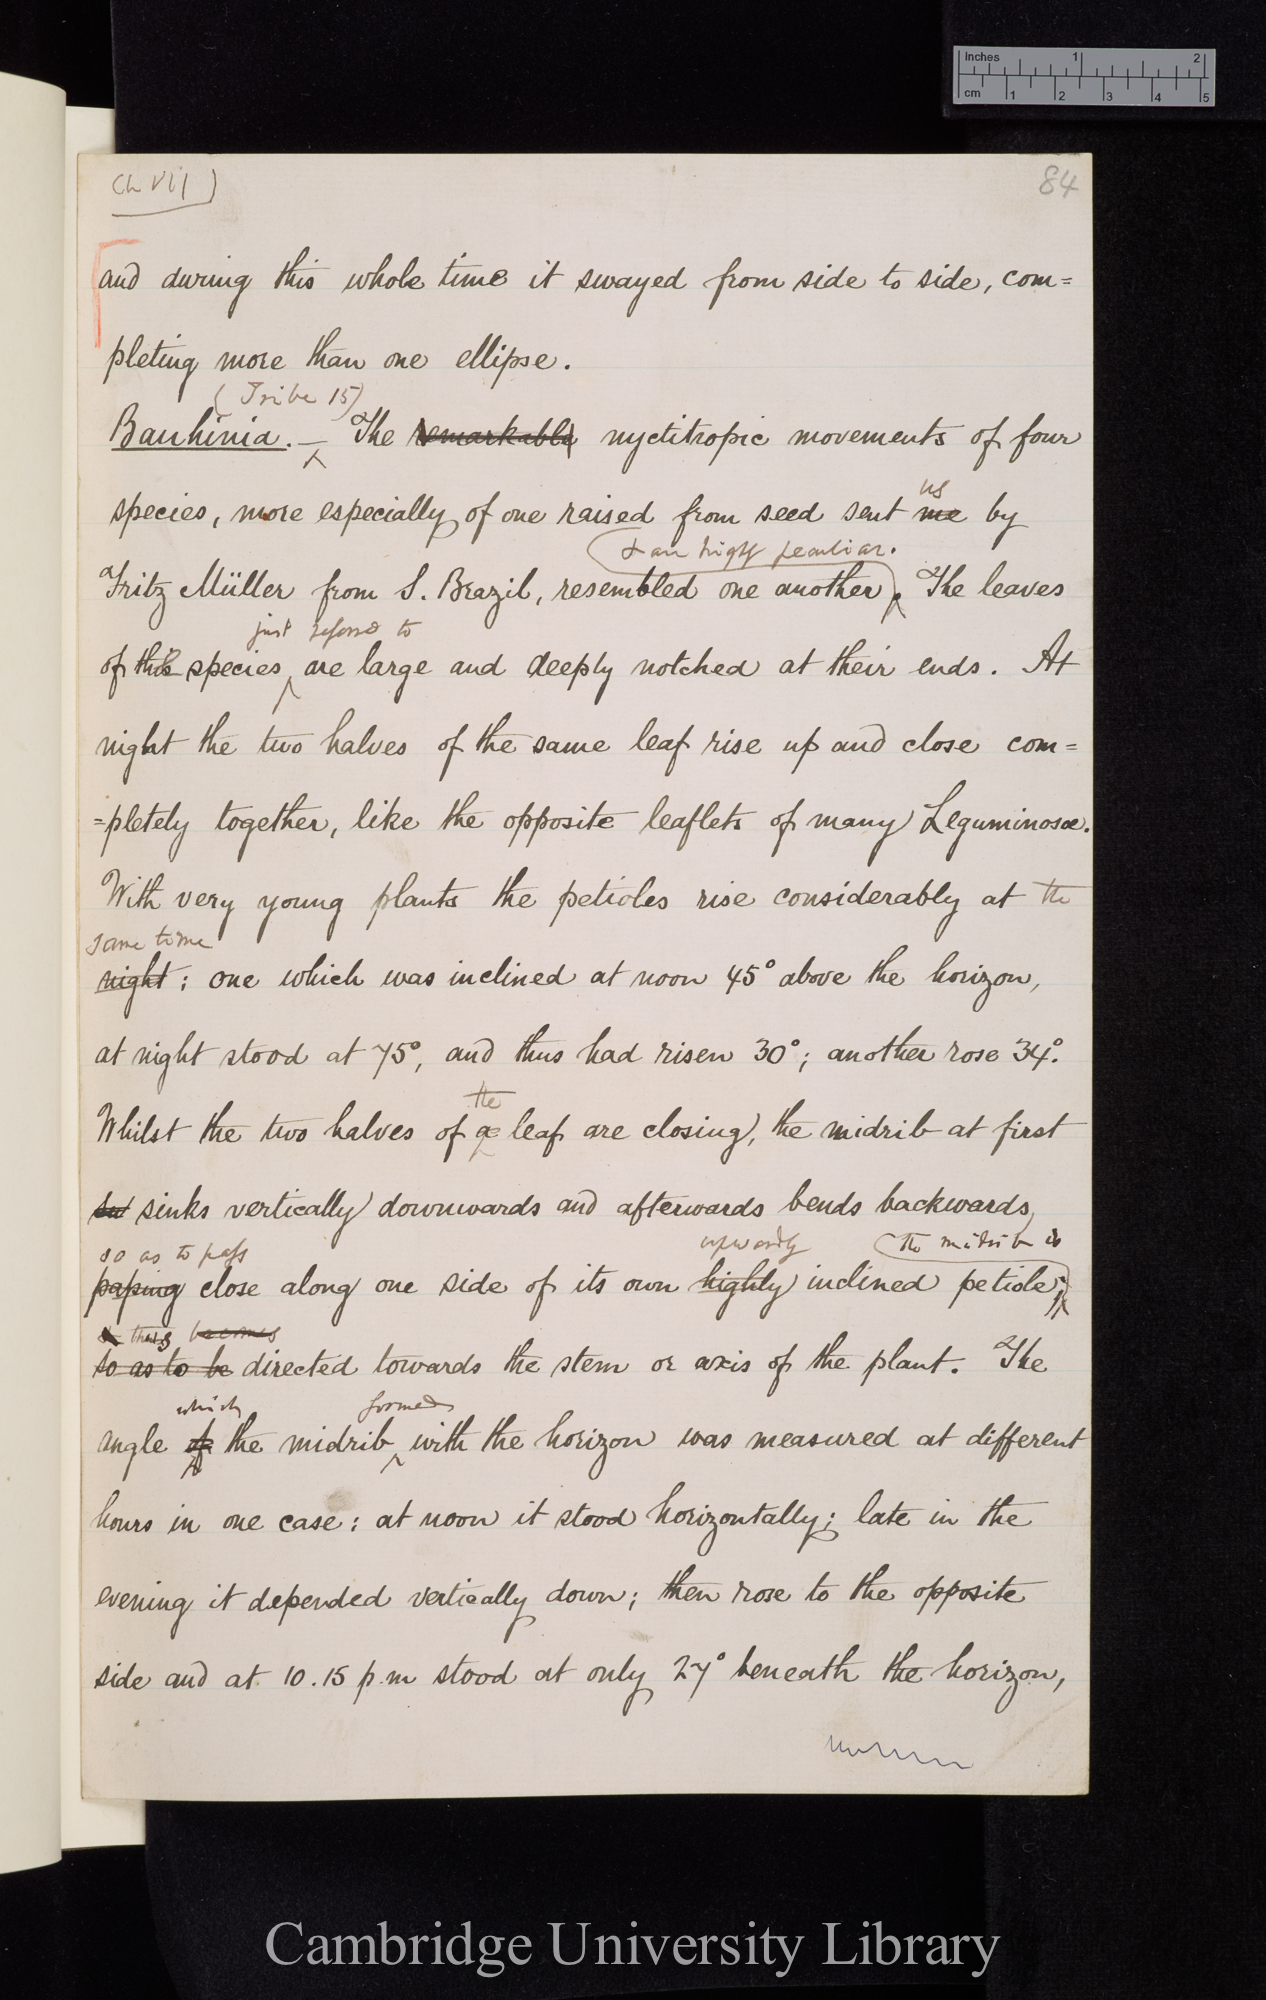 Ch VII)
84
and during this whole time it swayed from side to side, com=
pleting more than one ellipse.
(Tribe 15)
Bauhinia. — The remarkable nyctitropic movements of four
us
species, more especially of one raised from seed sent me by
& are highly peculiar.
Fritz Müller from S. Brazil, resembled one another. The leaves
just referred to
of the species are large and deeply notched at their ends. At
night the two halves of the same leaf rise up and close com=
=pletely together, like the opposite leaflets of many Leguminosæ.
With very young plants the petioles rise considerably at the
same time
night: one which was inclined at noon 45° above the horizon,
at night stood at 75°, and thus had risen 30°; another rose 34°.
the
Whilst the two halves of a leaf are closing, the midrib at first
sinks vertically downwards and afterwards bends backwards,
so as to pass upwardly the midrib is
passing close along one side of its own highly inclined petiole;
& thus becomes
so as to be directed towards the stem or axis of the plant. The
which formed
angle of the midrib with the horizon was measured at different
hours in one case: at noon it stood horizontally; late in the
evening it depended vertically down; then rose to the opposite
side and at 10.15 p.m stood at only 27° beneath the horizon,
Inches 1 2
cm 1 2 3 4 5
Cambridge University Library